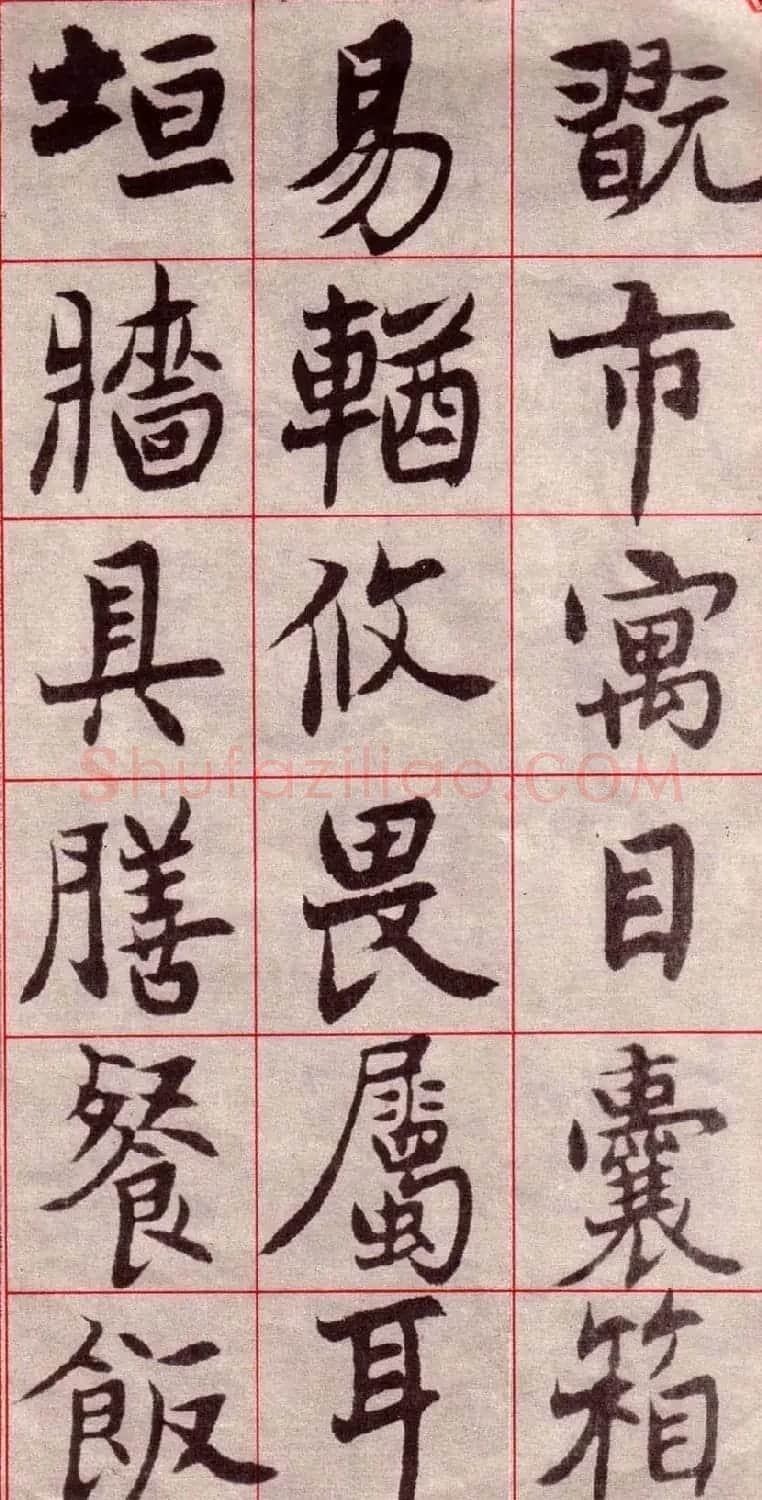 翫市寓目囊箱
易輶攸畏屬耳
垣牆具膳餐飯
Shufaziliao.COM